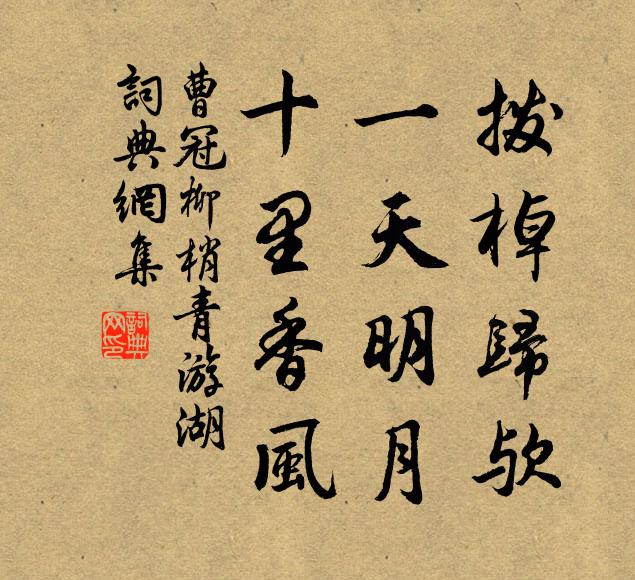 拨棹歸欤
一天明月
十里香風
曹冠柳梢青游湖
詞典網集
詞典网印